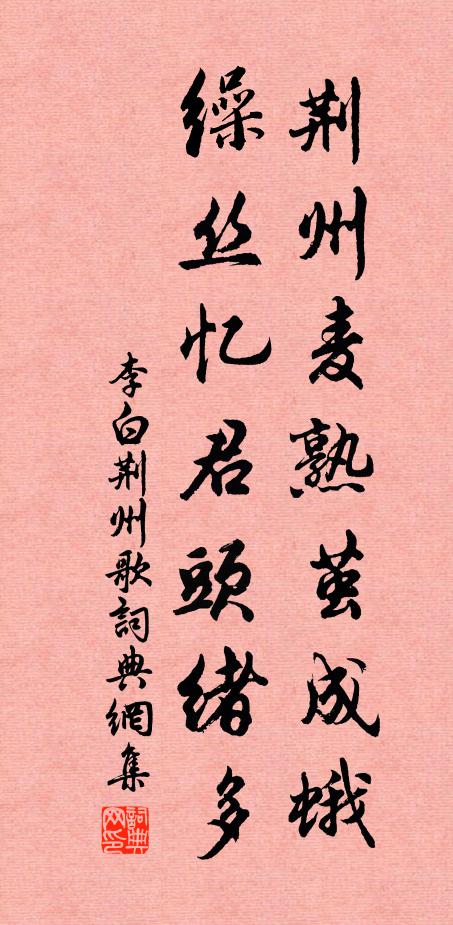 荆州麦熟茧成蛾
缲丝忆君頭緒多
李白荆州歌詞典網集
詞典网印